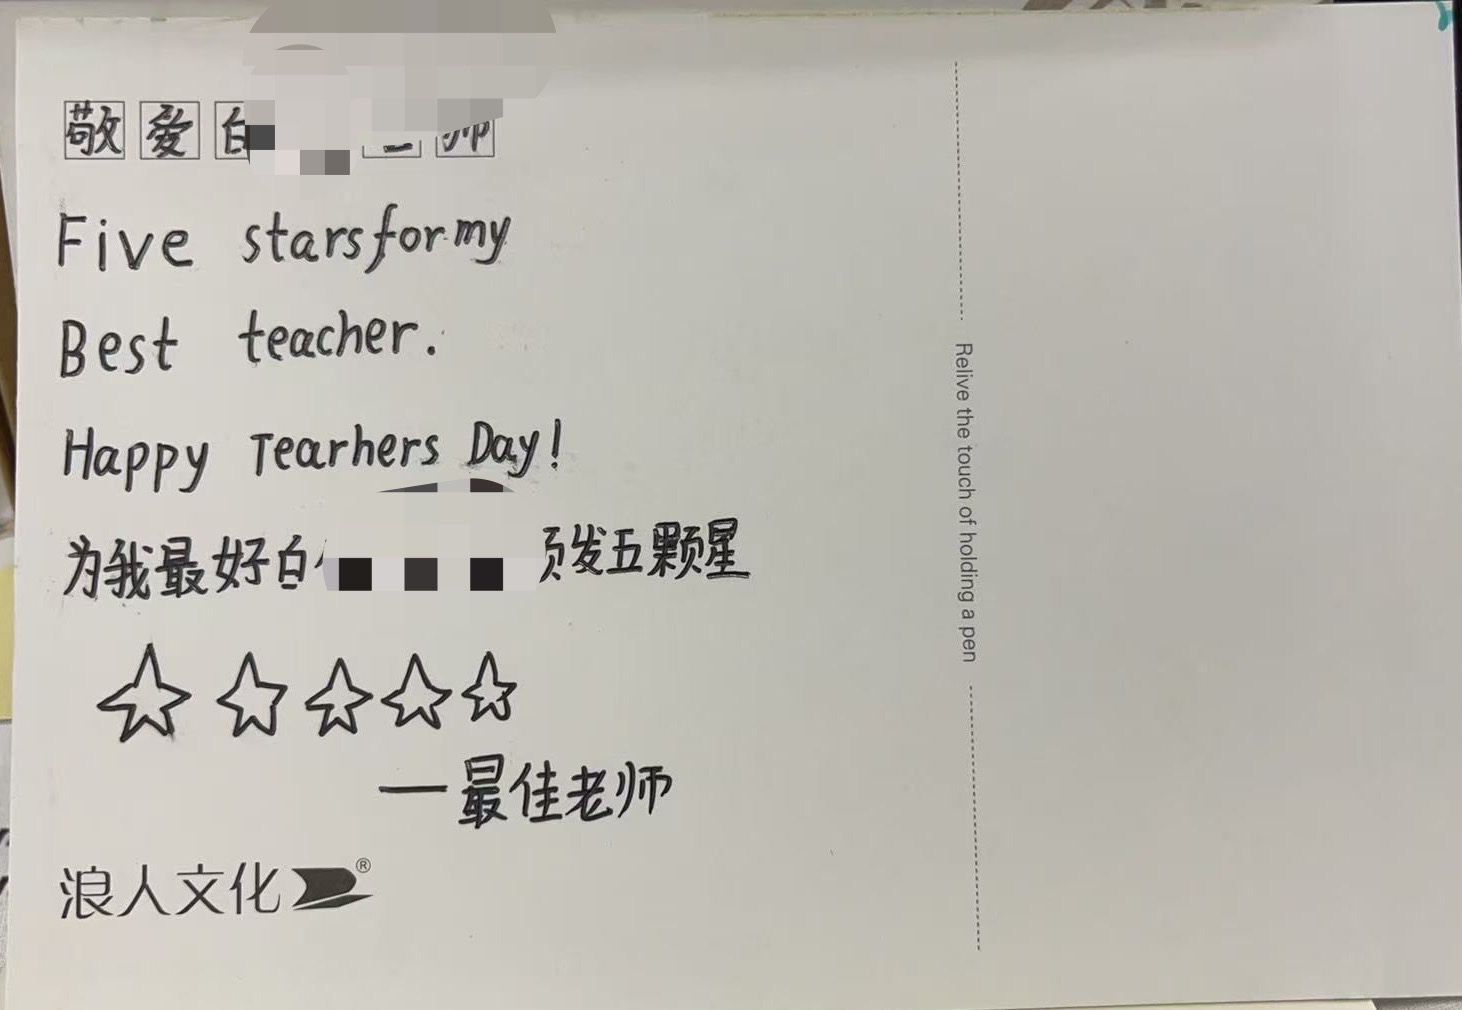 敬爱
Five stars for my
Best teacher.
Happy Tearhers Day!
为我最好白 发五颗星
—最佳老师
浪人文化®
Relive the touch of holding a pen